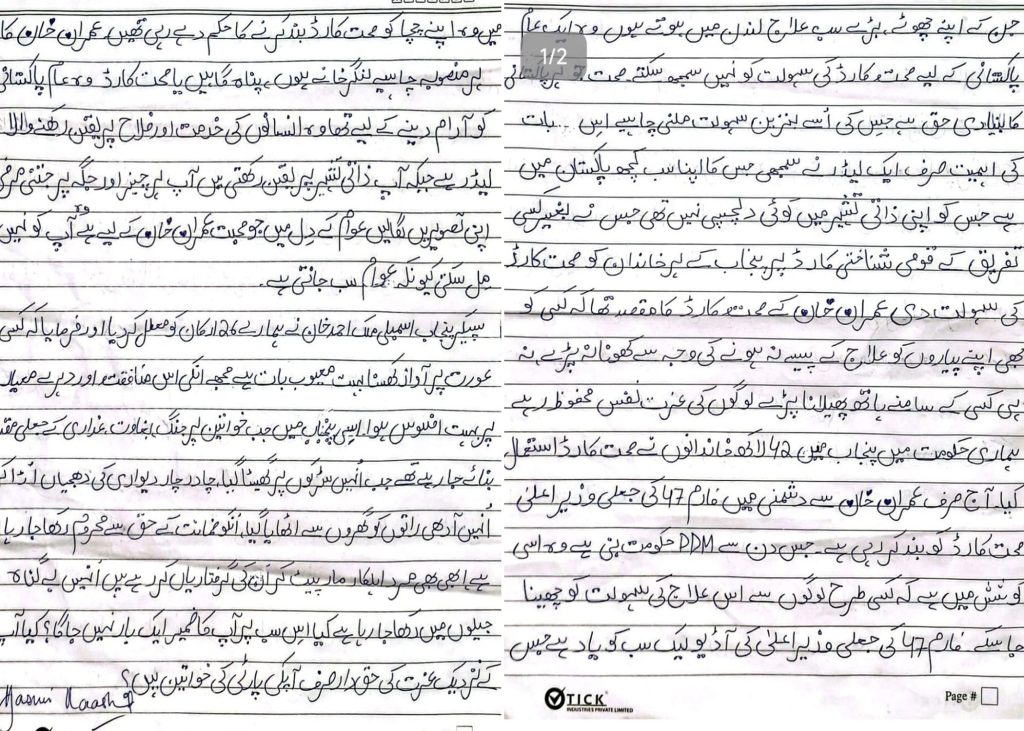 جن کے اپنے چھوٹے، بڑے سب علاج لندن میں ہوتے ہوں وہ ایک عام
1/2
پاکستانی کے لیے صحت کارڈ کی سہولت کو نہیں سمجھ سکتے صحت تو ہر پاکستانی
کا بنیادی حق ہے جس کی اُسے بہترین سہولت ملنی چاہیے اس بات
کی اہمیت صرف ایک لیڈر نے سمجھی جس کا اپنا سب کچھ پاکستان میں
ہے جس کو اپنی ذاتی تشہیر میں کوئی دلچسپی نہیں تھی جس نے بغیر کسی
تفریق کے قومی شناختی کارڈ پر پنجاب کے ہر خاندان کو صحت کارڈ
کی سہولت دی عمران خان کے صحت کارڈ کا مقصد تھا کہ کسی کو
بھی اپنے پیاروں کو علاج کے پیسے نہ ہونے کی وجہ سے کھونا نہ پڑے، نہ
ہی کسی کے سامنے ہاتھ پھیلانا پڑے لوگوں کی عزت نفس محفوظ رہے
ہماری حکومت میں پنجاب میں 42 لاکھ خاندانوں نے صحت کارڈ استعمال
کیا۔ آج صرف عمران خان سے دشمنی میں فارم 47 کی جعلی وزیر اعلیٰ
صحت کارڈ کو بند کر رہی ہے۔ جس دن سے PDM حکومت بنی ہے وہ اسی
کوشش میں ہے کہ کسی طرح لوگوں سے اس علاج کی سہولت کو چھینا
جا سکے فارم 47 کی جعلی وزیر اعلیٰ کی آڈیو لیک سب کو یاد ہے جس
TICK
INDUSTRIES PRIVATE LIMITED
Page #
میں وہ اپنے چچا کو صحت کارڈ بند کرنے کا حکم دے رہی تھیں، عمران خان کا
ہر منصوبہ چاہے لنگر خانے ہوں، پناہ گاہیں یا صحت کارڈ وہ عام پاکستانی
کو آرام دینے کے لیے تھا وہ انسانوں کی خدمت اور فلاح پہ یقین رکھنے والا
لیڈر ہے جبکہ آپ ذاتی تشہیر پر یقین رکھتی ہیں آپ ہر چیز اور جگہ پر جتنی مرضی
اپنی تصویریں لگا لیں عوام کے دل میں جو محبت عمران خان کے لیے ہے وہ آپ کو نہیں
مل سکتی کیونکہ عوام سب جانتی ہے۔
سپیکر پنجاب اسمبلی ملک احمد خان نے ہمارے 26 ارکان کو معطل کر دیا اور فرمایا کہ کسی
عورت پر آواز کسنا بہت معیوب بات ہے مجھے انکی اس منافقت اور دہرے معیار
پر بہت افسوس ہوا۔ اسی پنجاب میں جب خواتین پر جنگ، بغاوت، غداری کے جعلی مقد
بنائے جا رہے تھے جب اُنہیں سڑکوں پر گھسیٹا گیا، چادر چار دیواری کی دھجیاں اُڑا کر
اُنہیں آدھی راتوں کو گھروں سے اٹھایا گیا، اُنکو ضمانت کے حق سے محروم رکھا جا رہا
ہے ابھی بھی مرد اہلکار مار پیٹ کر اُن کی گرفتاریاں کر رہے ہیں اُنہیں بے گناہ
جیلوں میں رکھا جا رہا ہے کیا اس سب پر آپ کا ضمیر ایک بار نہیں جاگا؟ کیا آپ
کے نزدیک عزت کی حق دار صرف آپکی پارٹی کی خواتین ہیں؟